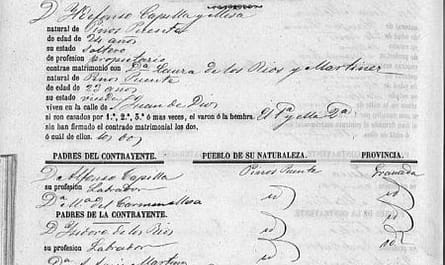 Dn Ildefonso Capilla y Mesa
natural de Pinos Puente
de edad de 24 años
su estado soltero
de profesion propietario
contrae matrimonio con Da Laura de los Rios y Martinez
natural de Pinos Puente
de edad de 23 años
su estado
viven en la calle de Juan de Dios
si son casados por 1.ª, 2.ª, 3.ª ó mas veces, el varon ó la hembra. El 1ª y ella
sin han firmado el contrado matrimonial los dos,
ó cuál de ellos. los dos
PADRES DEL CONTRAYENTE. PUEBLO DE SU NATURALEZA. PROVINCIA.
D Alfonso Capilla Pinos Puente Granada
su profesion Labrador
Da Ma del Carmen Mesa id id
PADRES DE LA CONTRAYENTE.
D Isidoro de los Rios id id
su profesion Labrador
Da Martinez id